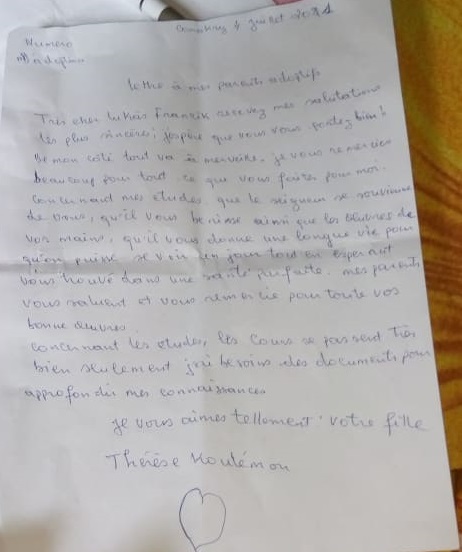 Conakry 4 juillet 2021
Numero
d'adoption
lettre à mes parents adoptifs
Très cher Francis recevez mes salutations
les plus sincères, j'espère que vous vous portez bien !
De mon côté tout va à merveille. je vous remercie
beaucoup pour tout ce que vous faites pour moi.
Concernant mes études, que le seigneur se souvienne
de vous, qu'il vous bénisse ainsi que les œuvres de
vos mains, qu'il vous donne une longue vie pour
qu'on puisse se voir un jour tout en espérant
vous trouvé dans une santé parfaite. mes parents
vous saluent et vous remercie pour toute vos
bonne œuvres.
concernant les etudes, les Cours se passent Très
bien seulement j'ai besoins des documents pour
approfondir mes connaissances
je vous aimes tellement votre fille
Thérèse Koulémou